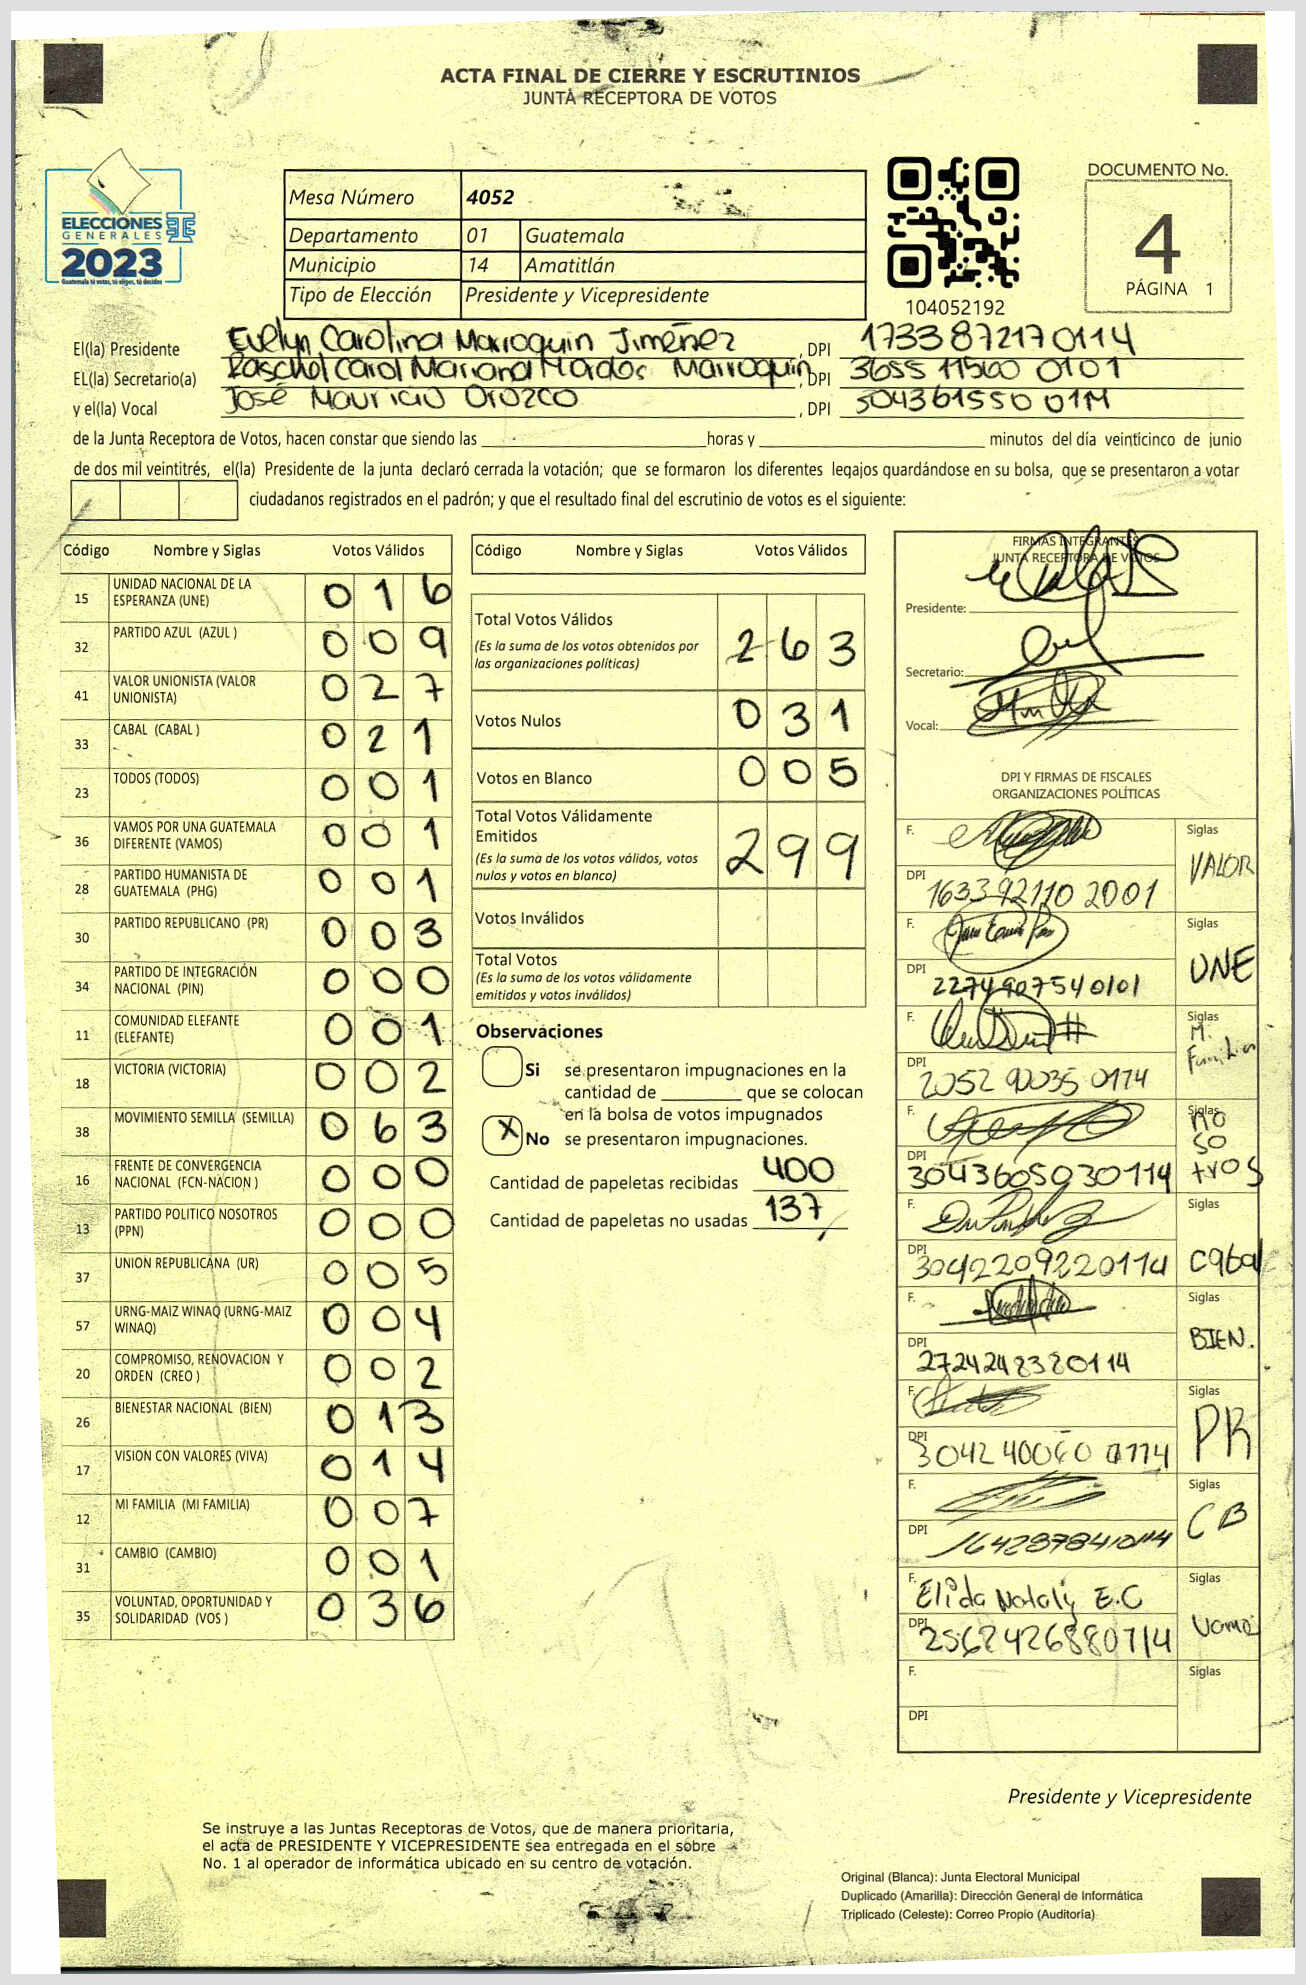 ACTA FINAL DE CIERRE Y ESCRUTINIOS
JUNTA RECEPTORA DE VOTOS
ELECCIONES
GENERALES
2023
Guatemala tú votas, tú eliges, tú decides
Mesa Número 4052
Departamento 01 Guatemala
Municipio 14 Amatitlán
Tipo de Elección Presidente y Vicepresidente
104052192
DOCUMENTO No.
4
PÁGINA 1
El(la) Presidente Evelyn Carolina Marroquin Jiménez , DPI 1733872170114
EL(la) Secretario(a) Carol Mariana Marroquin, DPI 3655 11560 0101
y el(la) Vocal José Mauricio Orozco , DPI
de la Junta Receptora de Votos, hacen constar que siendo las horas y minutos del día veinticinco de junio
de dos mil veintitrés, el(la) Presidente de la junta declaró cerrada la votación; que se formaron los diferentes legajos guardándose en su bolsa, que se presentaron a votar
ciudadanos registrados en el padrón; y que el resultado final del escrutinio de votos es el siguiente:
Código Nombre y Siglas Votos Válidos
15 UNIDAD NACIONAL DE LA ESPERANZA (UNE) 0 1 6
32 PARTIDO AZUL (AZUL ) 0 0 9
41 VALOR UNIONISTA (VALOR UNIONISTA) 0 2 7
33 CABAL (CABAL ) 0 2 1
23 TODOS (TODOS) 0 0 1
36 VAMOS POR UNA GUATEMALA DIFERENTE (VAMOS) 0 0 1
28 PARTIDO HUMANISTA DE GUATEMALA (PHG) 0 0 1
30 PARTIDO REPUBLICANO (PR) 0 0 3
34 PARTIDO DE INTEGRACIÓN NACIONAL (PIN) 0 0 0
11 COMUNIDAD ELEFANTE (ELEFANTE) 0 0 1
18 VICTORIA (VICTORIA) 0 0 2
38 MOVIMIENTO SEMILLA (SEMILLA) 0 6 3
16 FRENTE DE CONVERGENCIA NACIONAL (FCN-NACION ) 0 0 0
13 PARTIDO POLITICO NOSOTROS (PPN) 0 0 0
37 UNION REPUBLICANA (UR) 0 0 5
57 URNG-MAIZ WINAQ (URNG-MAIZ WINAQ) 0 0 4
20 COMPROMISO, RENOVACION Y ORDEN (CREO ) 0 0 2
26 BIENESTAR NACIONAL (BIEN) 0 1 3
17 VISION CON VALORES (VIVA) 0 1 4
12 MI FAMILIA (MI FAMILIA) 0 0 7
31 CAMBIO (CAMBIO) 0 0 1
35 VOLUNTAD, OPORTUNIDAD Y SOLIDARIDAD (VOS ) 0 3 6
Código Nombre y Siglas Votos Válidos
Total Votos Válidos 2 6 3
(Es la suma de los votos obtenidos por
las organizaciones políticas)
Votos Nulos 0 3 1
Votos en Blanco 0 0 5
Total Votos Válidamente
Emitidos 2 9 9
(Es la suma de los votos válidos, votos
nulos y votos en blanco)
Votos Inválidos
Total Votos
(Es la suma de los votos válidamente
emitidos y votos inválidos)
Observaciones
Si se presentaron impugnaciones en la
cantidad de que se colocan
en la bolsa de votos impugnados
X No se presentaron impugnaciones.
Cantidad de papeletas recibidas 400
Cantidad de papeletas no usadas 137
FIRMAS INTEGRANTES
JUNTA RECEPTORA DE VOTOS
Presidente:
Secretario:
Vocal:
DPI Y FIRMAS DE FISCALES
ORGANIZACIONES POLÍTICAS
F. Siglas VALOR
DPI 163392110 2001
F. Siglas UNE
DPI 2274907540101
F. Siglas M. Familia
DPI 2052 90035 0114
F. Siglas NOSOtrOS
DPI 3043605030114
F. Siglas Cabal
DPI 3042209220114
F. Siglas BIEN.
DPI 2724248320114
F. Siglas PR
DPI 3042 40060 0114
F. Siglas CB
DPI 1642878410114
F. Elida Nataly E.C Siglas Vamos
DPI 2562426880114
F. Siglas
DPI
Presidente y Vicepresidente
Se instruye a las Juntas Receptoras de Votos, que de manera prioritaria,
el acta de PRESIDENTE Y VICEPRESIDENTE sea entregada en el sobre
No. 1 al operador de informática ubicado en su centro de votación.
Original (Blanca): Junta Electoral Municipal
Duplicado (Amarilla): Dirección General de Informática
Triplicado (Celeste): Correo Propio (Auditoría)